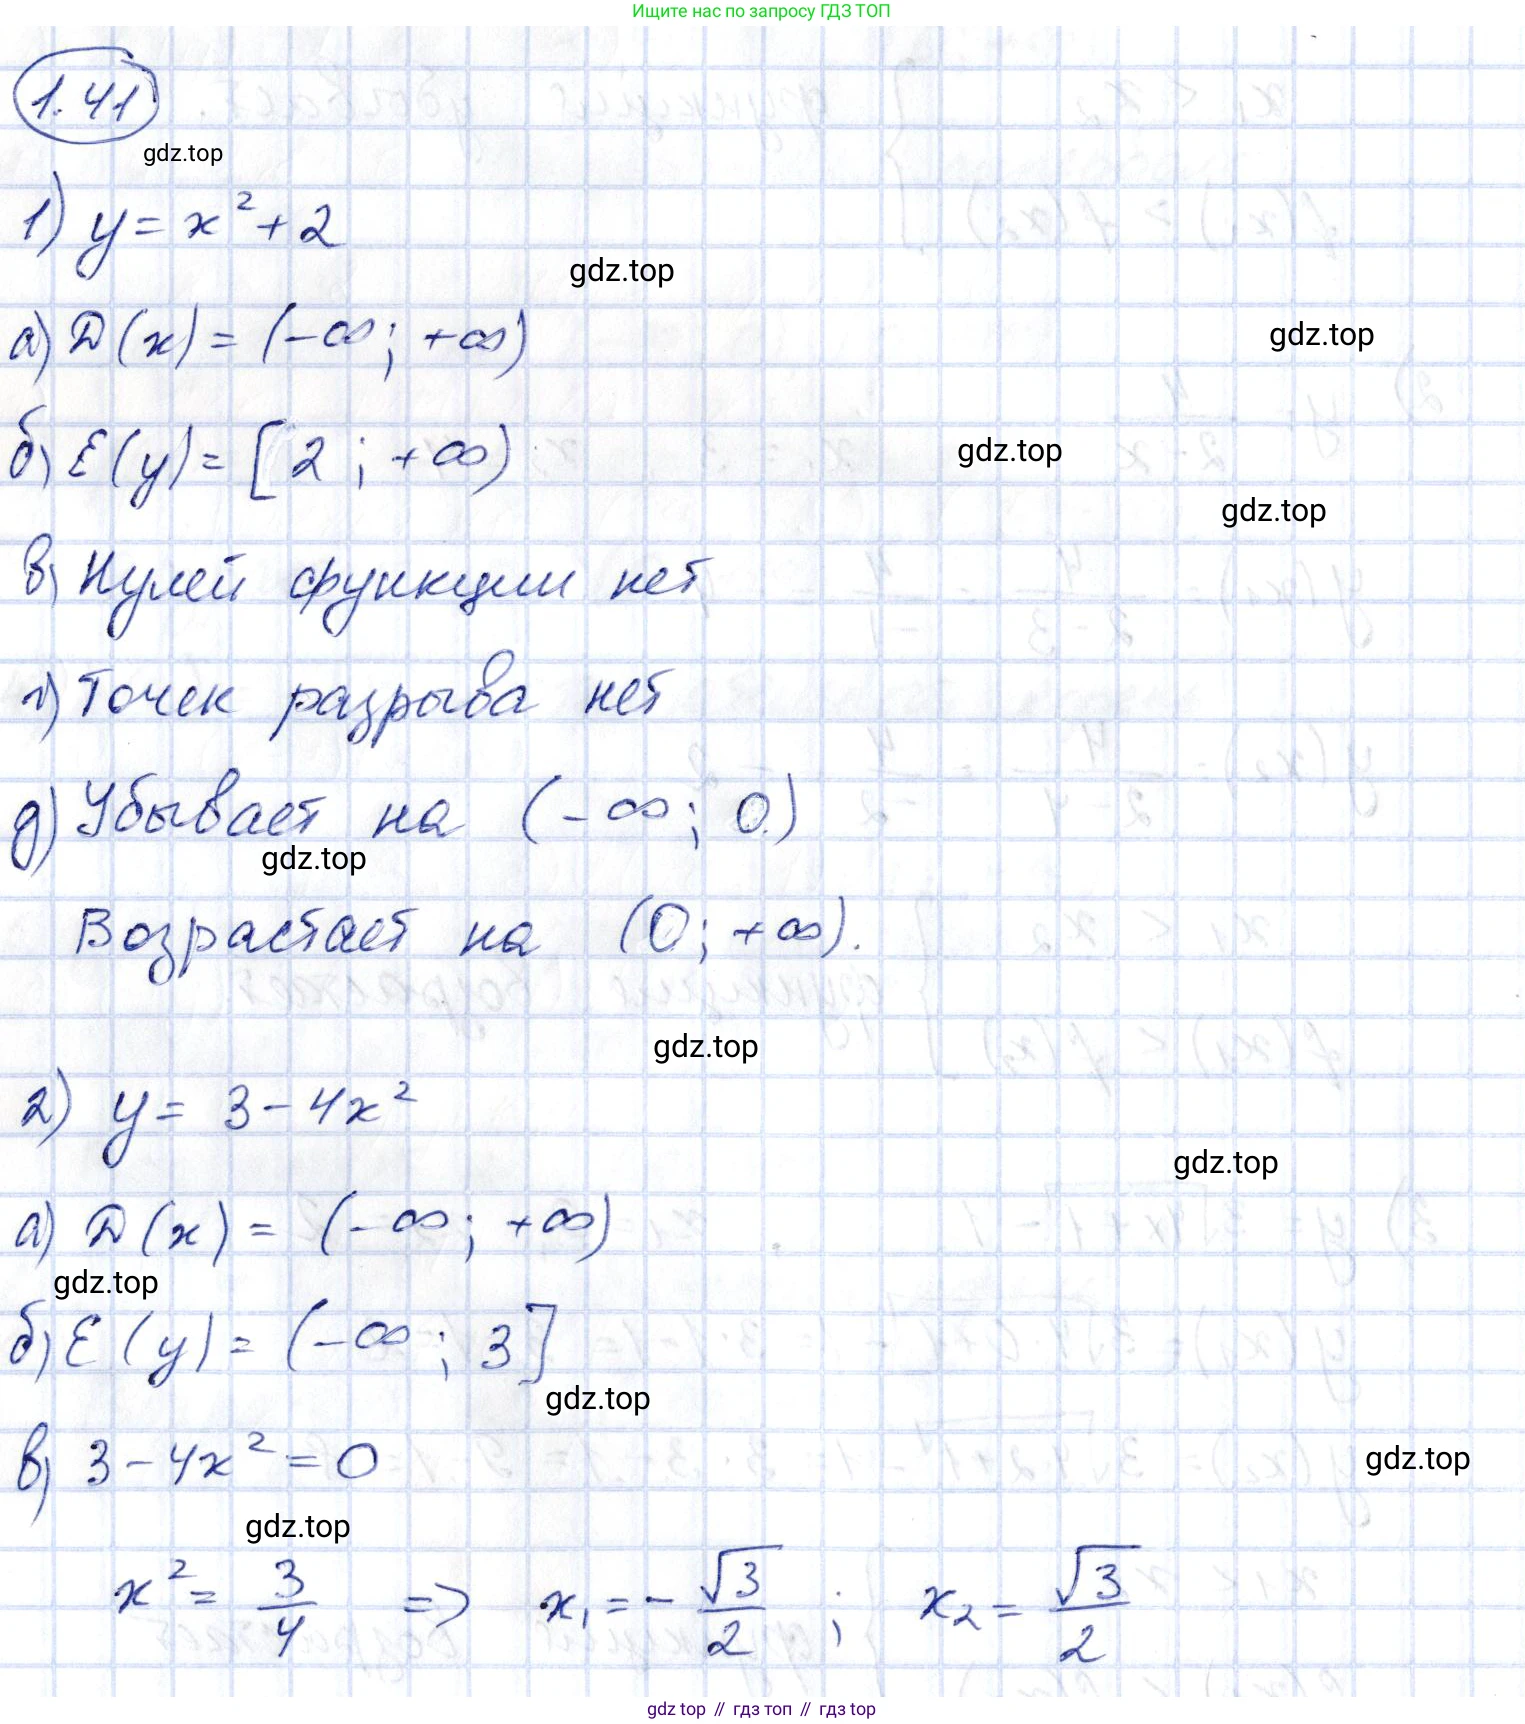 Ищите нас по запросу ГДЗ ТОП
1.41
gdz.top
1) y = x² + 2
gdz.top
а) D(x) = (-∞; +∞)
gdz.top
б) E(y) = [2; +∞)
gdz.top
gdz.top
в) Нулей функции нет
г) Точек разрыва нет
д) Убывает на (-∞; 0)
gdz.top
Возрастает на (0; +∞).
gdz.top
2) y = 3 - 4x²
gdz.top
а) D(x) = (-∞; +∞)
gdz.top
б) E(y) = (-∞; 3]
gdz.top
в) 3 - 4x² = 0
gdz.top
gdz.top
x² = 3/4 => x₁ = -√3/2 ; x₂ = √3/2
gdz top // гдз топ // гдз top